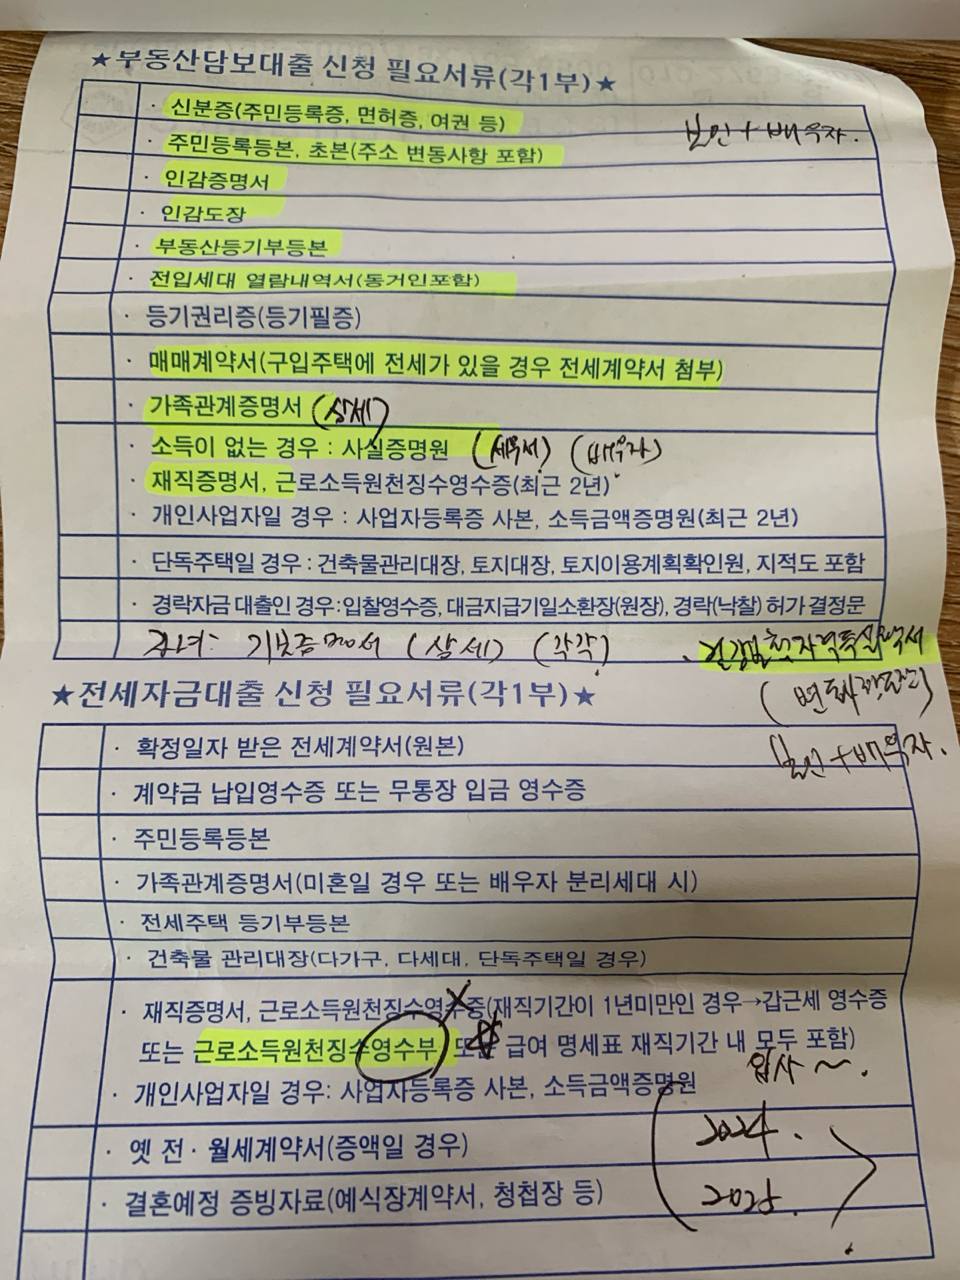 ★부동산담보대출 신청 필요서류(각1부)★
· 신분증(주민등록증, 면허증, 여권 등)
본인 + 배우자.
· 주민등록등본, 초본(주소 변동사항 포함)
· 인감증명서
· 인감도장
· 부동산등기부등본
· 전입세대 열람내역서(동거인포함)
· 등기권리증(등기필증)
· 매매계약서(구입주택에 전세가 있을 경우 전세계약서 첨부)
· 가족관계증명서 (상세)
· 소득이 없는 경우 : 사실증명원 (세무서) (배우자)
· 재직증명서, 근로소득원천징수영수증(최근 2년)
· 개인사업자일 경우 : 사업자등록증 사본, 소득금액증명원(최근 2년)
· 단독주택일 경우 : 건축물관리대장, 토지대장, 토지이용계획확인원, 지적도 포함
· 경락자금 대출인 경우:입찰영수증, 대금지급기일소환장(원장), 경락(낙찰) 허가 결정문
자녀: 기본증명서 (상세) (각각)
★전세자금대출 신청 필요서류(각1부)★
본인 + 배우자.
· 확정일자 받은 전세계약서(원본)
· 계약금 납입영수증 또는 무통장 입금 영수증
· 주민등록등본
· 가족관계증명서(미혼일 경우 또는 배우자 분리세대 시)
· 전세주택 등기부등본
· 건축물 관리대장(다가구, 다세대, 단독주택일 경우)
· 재직증명서, 근로소득원천징수영수증(재직기간이 1년미만인 경우→갑근세 영수증
또는 근로소득원천징수영수부 또는 급여 명세표 재직기간 내 모두 포함)
입사 ~.
· 개인사업자일 경우: 사업자등록증 사본, 소득금액증명원
2024.
· 옛 전 · 월세계약서(증액일 경우)
2025.
· 결혼예정 증빙자료(예식장계약서, 청첩장 등)